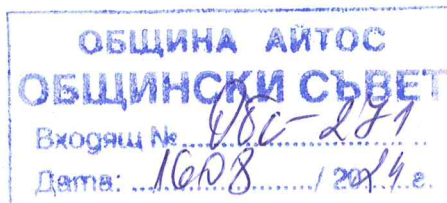 ОБЩИНА АЙТОС
ОБЩИНСКИ СЪВЕТ
Входящ № ОбС-271
Дата: 16.08 / 2024 г.